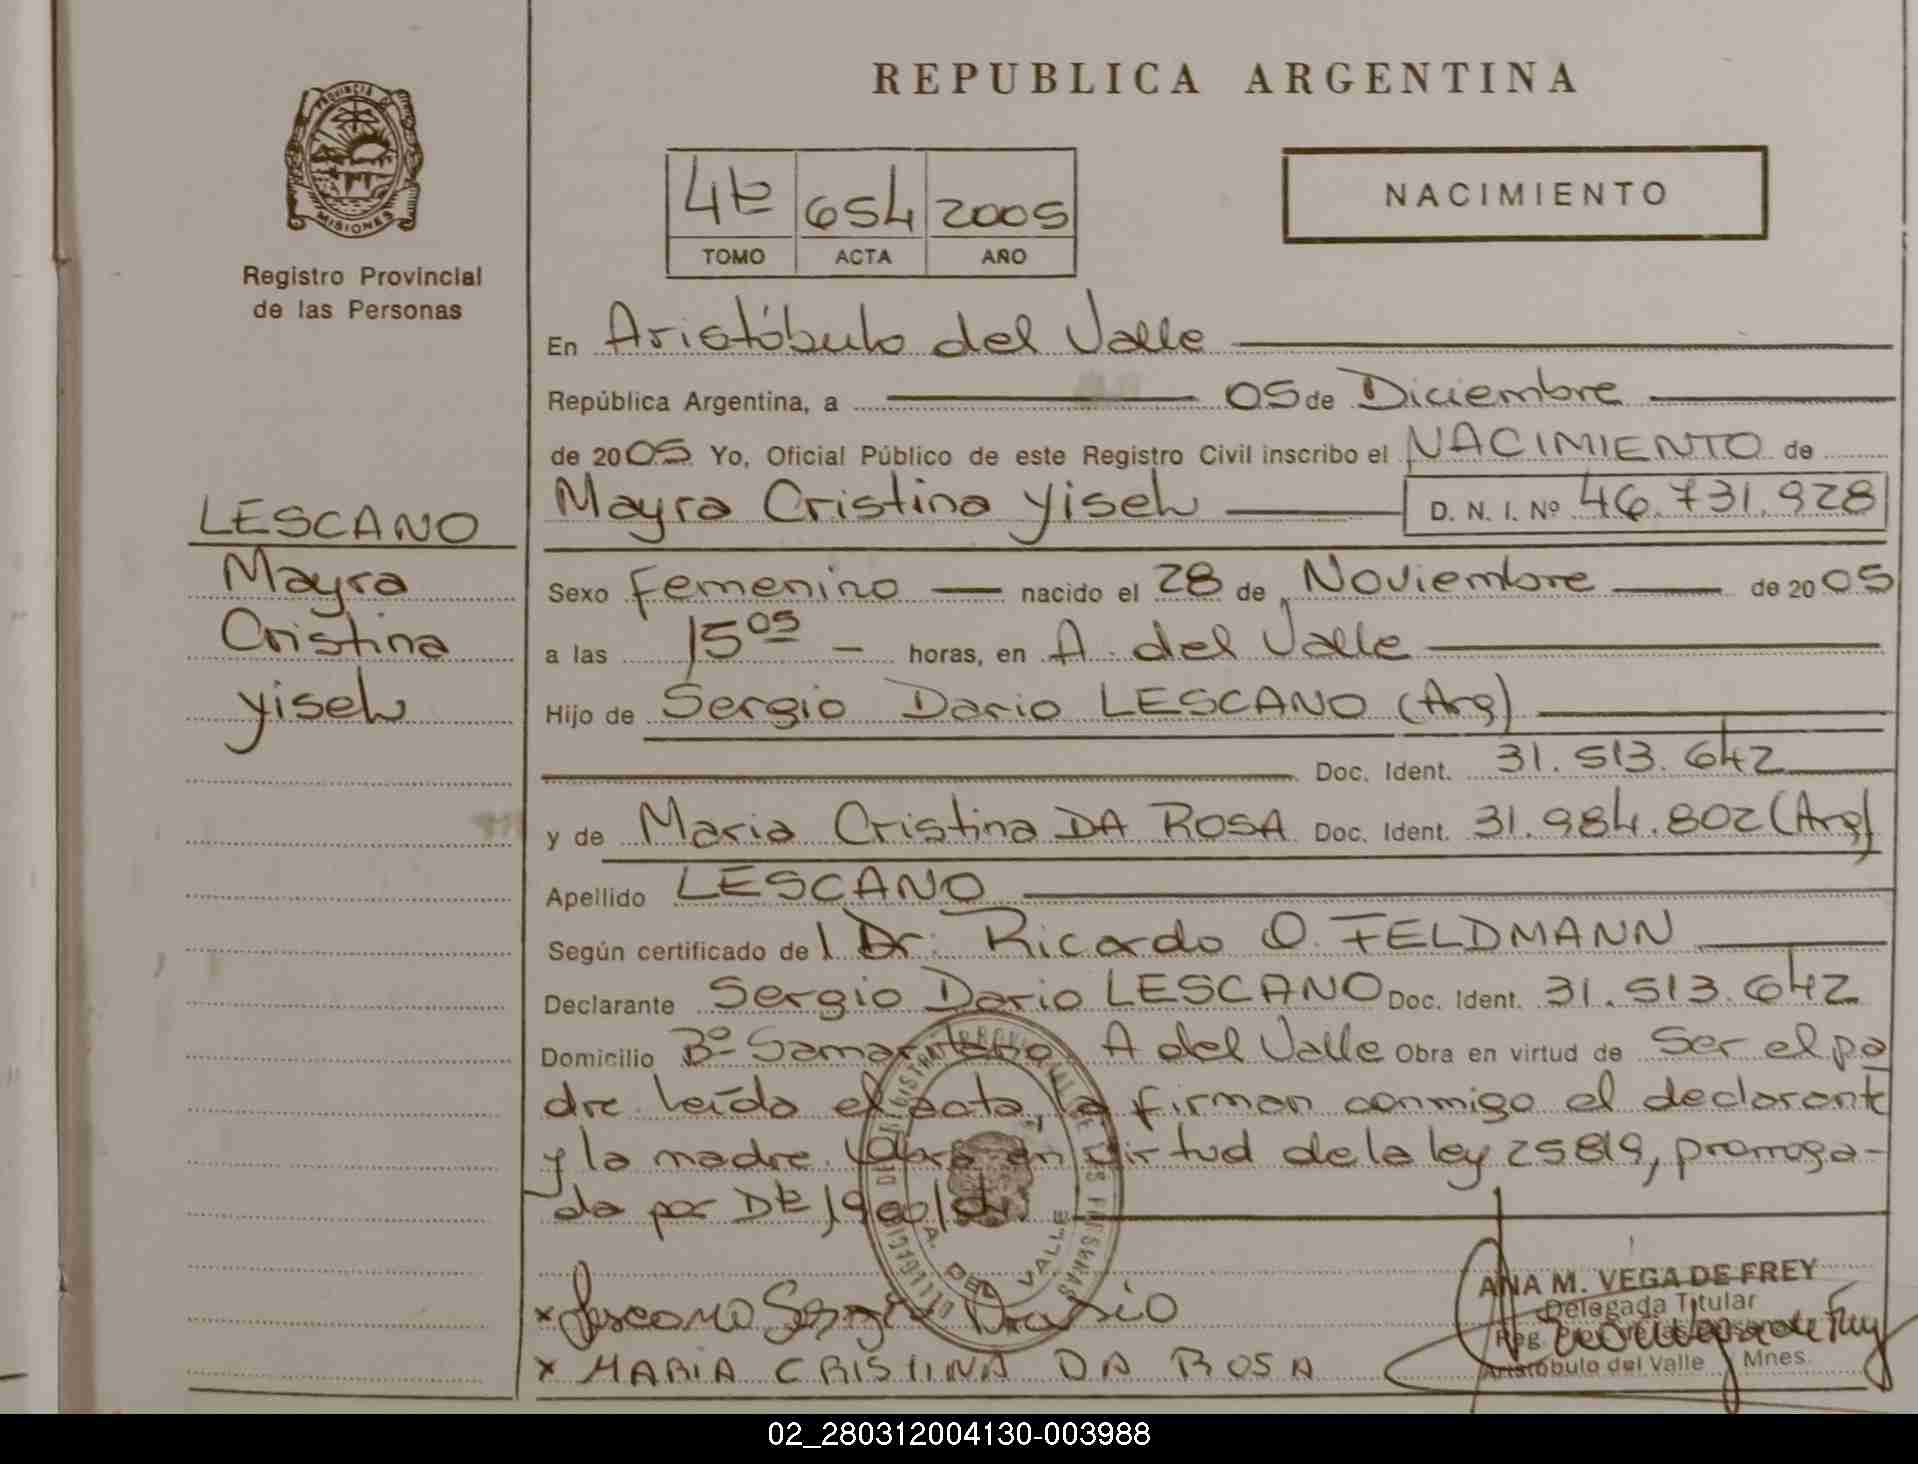 REPUBLICA ARGENTINA
PROVINCIA DE
MISIONES
Registro Provincial
de las Personas
4to 654 2005
TOMO ACTA AÑO
NACIMIENTO
En Aristóbulo del Valle
República Argentina, a 05 de Diciembre
de 2005 Yo, Oficial Público de este Registro Civil inscribo el NACIMIENTO de
Mayra Cristina Yisel D. N. I. Nº 46.731.928
LESCANO
Mayra
Cristina
Yisel
Sexo femenino nacido el 28 de Noviembre de 2005
a las 15 05 horas, en A. del Valle
Hijo de Sergio Dario LESCANO (Arg)
Doc. Ident. 31.513.642
y de Maria Cristina DA ROSA Doc. Ident. 31.984.802 (Arg)
Apellido LESCANO
Según certificado de l Dr. Ricardo O. FELDMANN
Declarante Sergio Dario LESCANO Doc. Ident. 31.513.642
Domicilio Bº Samaritano, A del Valle Obra en virtud de Ser el pa
dre leída el acta, la firman conmigo el declarante
y la madre. Labra en virtud de la ley 25819, prorroga-
da por
A. DEL VALLE
x Lescano Sergio Dario
x MARIA CRISTINA DA ROSA
ANA M. VEGA DE FREY
Delegada Titular
Reg.
Aristóbulo del Valle Mnes.
02_280312004130-003988